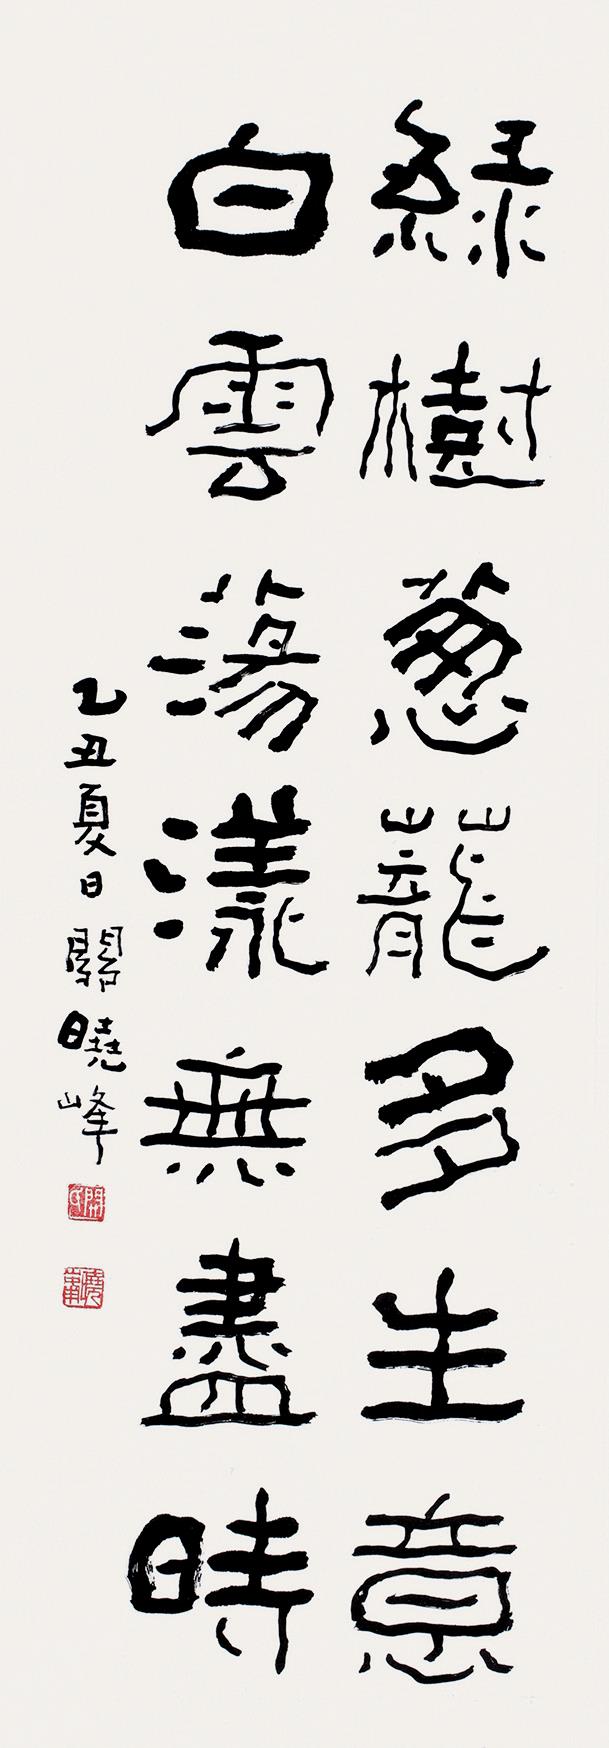 綠樹蔥蘢多生意
白雲蕩漾無盡時
乙丑夏日關曉峰